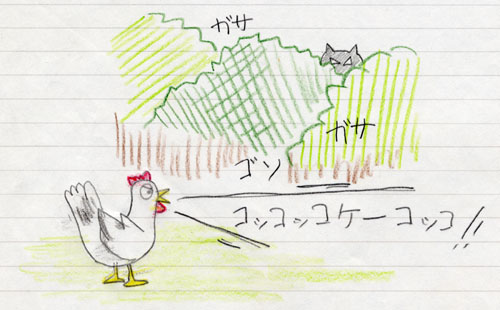 ガサ
ガサ
ゴソ
コッコッコケーコッコ!!